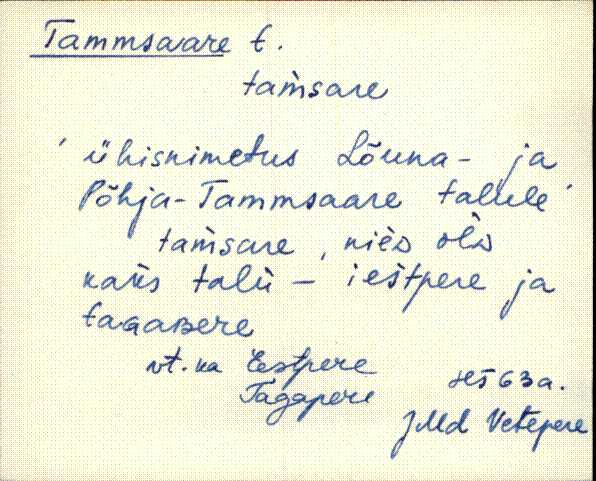 Tammsaare t.
tam̀sare
'ühisnimetus Lõuna- ja
Põhja-Tammsaare talule'
tam̀sare, niės olı̇̀
talù – ieštpere ja
taGaBere
vt. ka Eestpere
Tagapere
JMd Vetepere